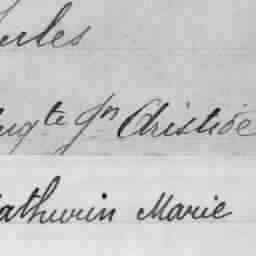 ules
ugte Jn Aristide
athurin Marie